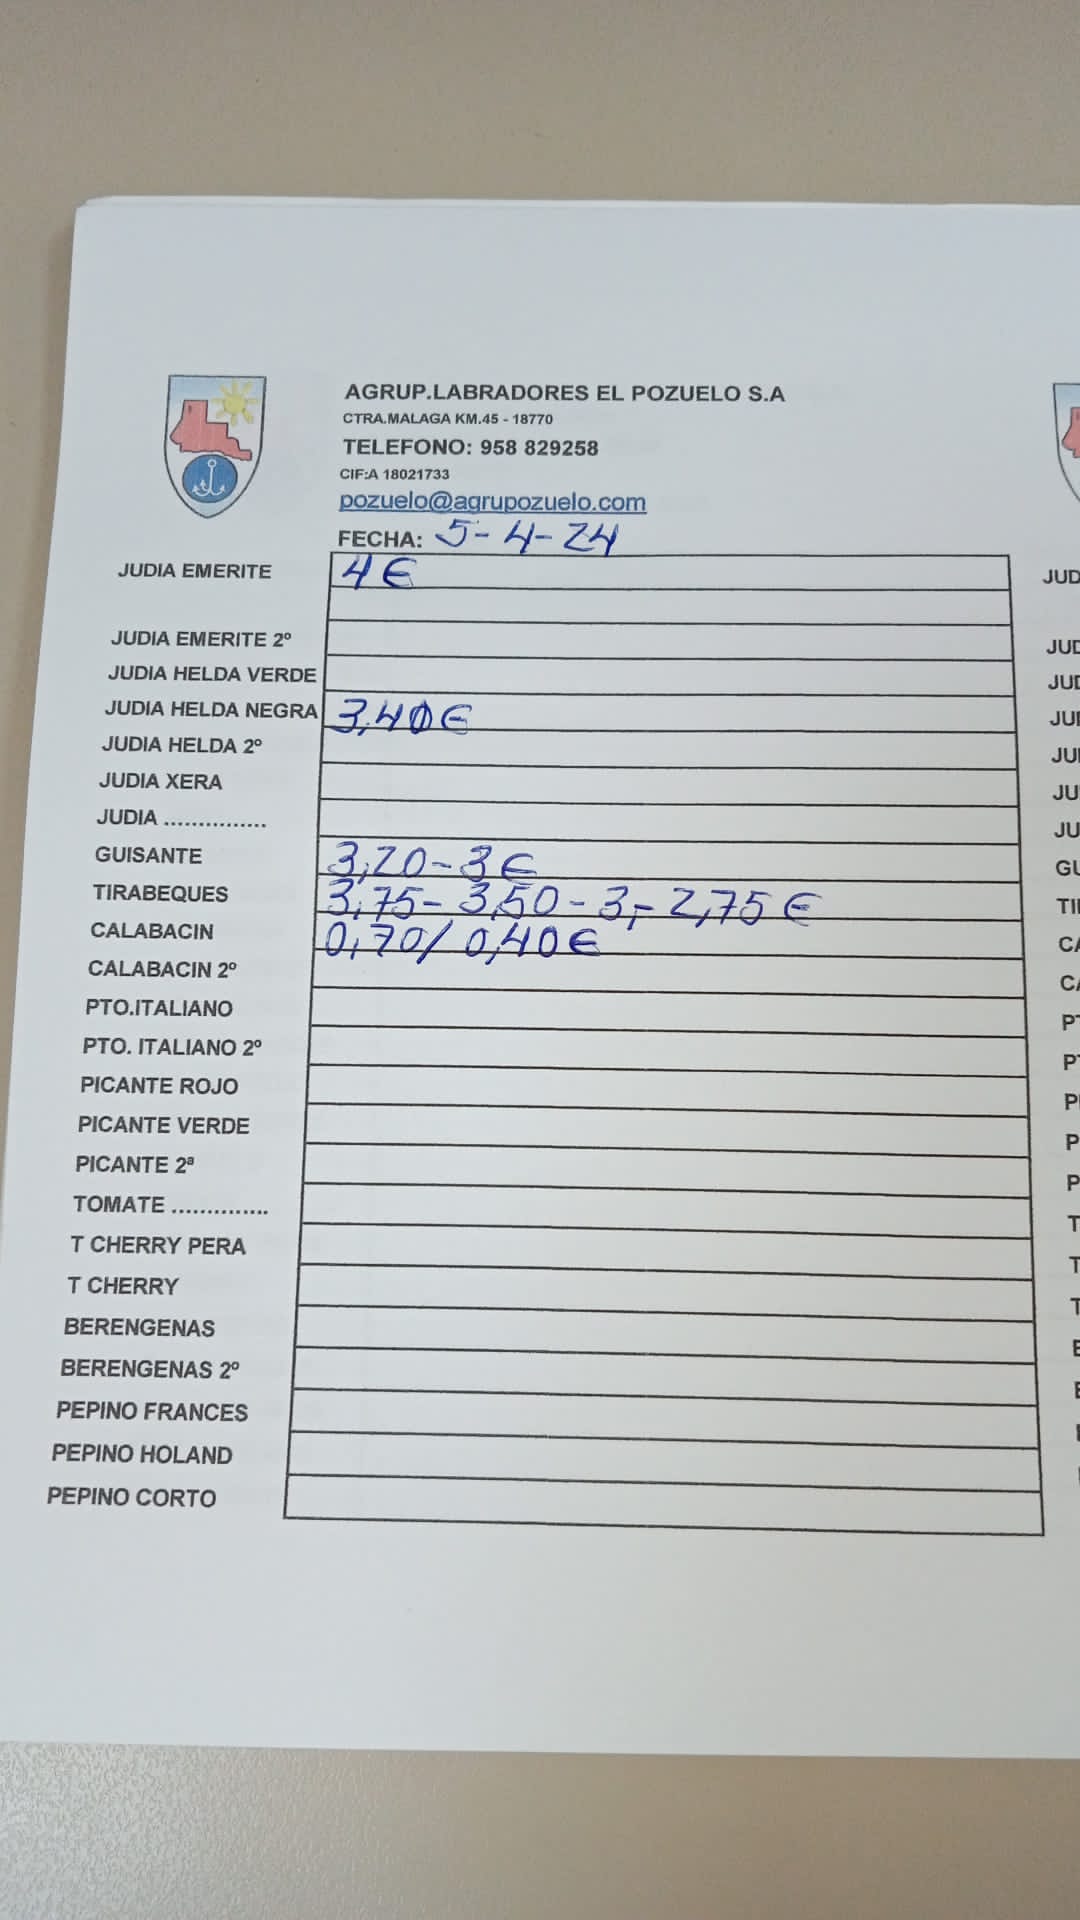 AGRUP.LABRADORES EL POZUELO S.A
CTRA.MALAGA KM.45 - 18770
TELEFONO: 958 829258
CIF:A 18021733
pozuelo@agrupozuelo.com
FECHA: 5-4-24
JUDIA EMERITE 4€
JUDIA EMERITE 2º
JUDIA HELDA VERDE
JUDIA HELDA NEGRA 3,40€
JUDIA HELDA 2º
JUDIA XERA
JUDIA ...............
GUISANTE 3,20-3€
TIRABEQUES 3,75- 3,50-3,- 2,75€
CALABACIN 0,70/ 0,40€
CALABACIN 2º
PTO.ITALIANO
PTO. ITALIANO 2º
PICANTE ROJO
PICANTE VERDE
PICANTE 2ª
TOMATE ..............
T CHERRY PERA
T CHERRY
BERENGENAS
BERENGENAS 2º
PEPINO FRANCES
PEPINO HOLAND
PEPINO CORTO